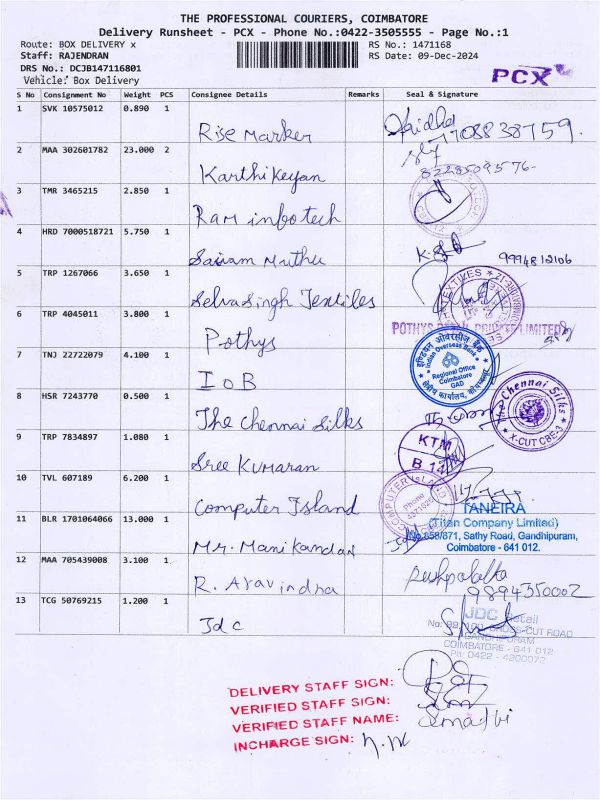 THE PROFESSIONAL COURIERS, COIMBATORE
Delivery Runsheet - PCX - Phone No.:0422-3505555 - Page No.:1
Route: BOX DELIVERY x
RS No.: 1471168
Staff: RAJENDRAN
RS Date: 09-Dec-2024
DRS No.: DCJB147116801
Vehicle: Box Delivery
PCX
S No Consignment No Weight PCS Consignee Details Remarks Seal & Signature
1 SVK 10575012 0.890 1 Rise Marker 7708838759.
2 MAA 302601782 23.000 2 Karthikeyan
3 TMR 3465215 2.850 1 Ram infotech
4 HRD 7000518721 5.750 1 Sairam Muthu 9994812106
5 TRP 1267066 3.650 1 Selvasingh Textiles
6 TRP 4045011 3.800 1 Pothys
POTHYS PRIVATE LIMITED
7 TNJ 22722079 4.100 1 IOB
इण्डियन ओवरसीज़ बैंक
Indian Overseas Bank
Regional Office
Coimbatore
GAD
8 HSR 7243770 0.500 1 The Chennai Silks
The Chennai Silks
X-CUT CBE-3
9 TRP 7834897 1.080 1 Sree Kumaran
KTM
B 14
10 TVL 607189 6.200 1 Computer Island
COMPUTER ISLAND
Phone
11 BLR 1701064066 13.000 1 Mr. Manikandan
TANEIRA
(Titan Company Limited)
No.858/871, Sathy Road, Gandhipuram,
Coimbatore - 641 012.
12 MAA 705439008 3.100 1 R. Aravindha
9894350002
13 TCG 50769215 1.200 1 Jdc
JDC Retail
CROSS-CUT ROAD
GANDHIPURAM
COIMBATORE - 641 012
Ph: 0422 - 4200072
DELIVERY STAFF SIGN:
VERIFIED STAFF SIGN:
VERIFIED STAFF NAME:
INCHARGE SIGN: